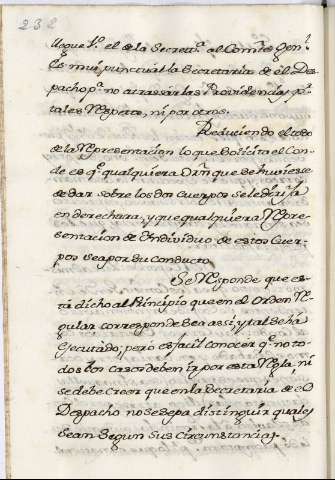 232
llegue Vs. el de la Secretª. al Comte. Gen.
le mui puntual la Secretaria de el Des
pacho pª. no atrasar las Providencias pr.
tales Respetos, ni por otros.
Reduciendo el todo
de la Representacion lo que solicita el Con-
de es qe. qualquiera Orñ que se huviese
de dar sobre los dos Cuerpos se le dirija
en derechura, y que qualquiera Repre-
sentacion de Individuo de estos Cuer-
pos sea por su Conducto
Se Responde que es-
ta dicho al Principio que en el Orden Re-
gular corresponde sea assi, y tal se ha
Executado; pero es facil conocer qe. no to-
dos los casos deben ir por esta Regla, ni
se debe creer que en la Secretaria de el
Despacho no se sepa distinguir quales
sean segun sus circunstancias,